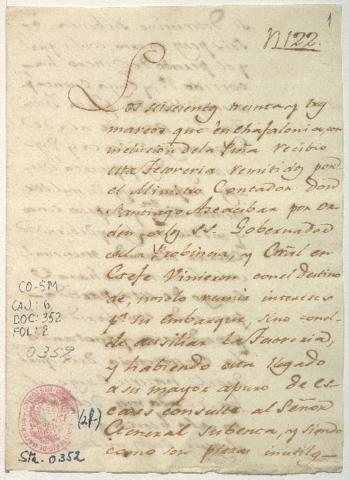 1
N 122.
Los seiscientos treinta y tres
marcos que en chafalonia, con
inclucion de la Piña recibio
esta Tesoreria remitidos por
el Ministro Contador don
Santiago por or-
den de S.S. Gobernador
de la Probincia, y Gral en
Gefe Vinieron con el destino
de, no solo
pr su embarque, sino con el
de auxiliar la Tesoreria,
y habiendo esta llegado
a su mayor apuro de es-
cases consulté al Señor
General su benta, y siendo
como son piezas inutiles
CO-SM
CAJ: 6
DOC: 352
FOL: 2
0352
(2f.)
Sta. 0352